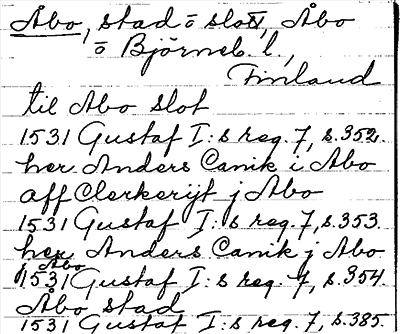 Åbo, stad o slott, Åbo
o Björneb. l.,
Finland
til Abo slot
1531 Gustaf I:s reg. 7, s.352.
her Anders Canik i Abo
aff Clerkerijt j Åbo
1531 Gustaf I:s reg. 7, s.353.
her Anders Canik j Åbo
j Åbo
1531 Gustaf I:s reg. 7, s.354.
Åbo stad
1531 Gustaf I:s reg. 7, s.385.